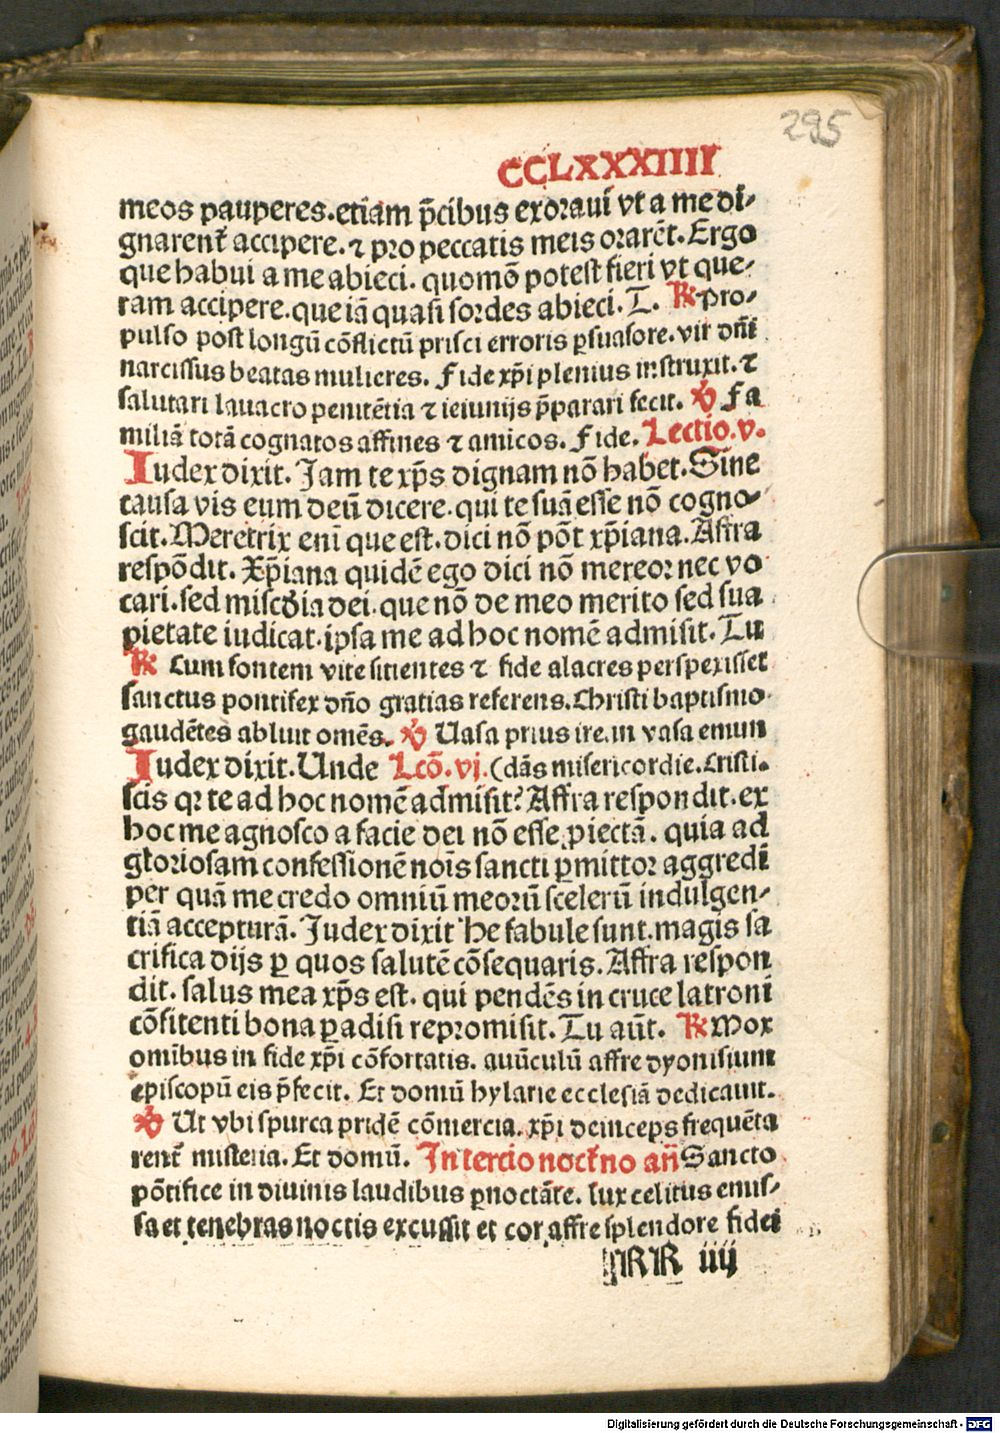 295
CCLXXXIIII
meos pauperes.etiam p̄cibus exoraui vt a me di⸗
gnarent᷑ accipere.⁊ pro peccatis meis orarēt.Ergo
que habui a me abieci. quomō potest fieri vt que⸗
ram accipere.que iā quasi sordes abieci.T. ℟ Pro⸗
pulso post longū cōflictū prisci erroris ꝑsuasore.vir dn̄i
narcissus beatas mulieres. Fide xp̄i plenius instruxit.⁊
salutari lauacro penitētia ⁊ ieiunijs p̄parari fecit. ℣ Fa
miliā totā cognatos affines ⁊ amicos. Fide. Lectio.v.
Iudex dixit. Jam te xp̄s dignam nō habet.Sine
causa vis eum deū dicere.qui te suā esse nō cogno⸗
scit.Meretrix eni que est.dici nō pōt xp̄iana.Affra
respōdit. Xp̄iana quidē ego dici nō mereor nec vo
cari.sed miscd̄ia dei.que nō de meo merito sed sua
pietate iudicat.ipsa me ad hoc nomē admisit.Tu
℟ Cum fontem vite sitientes ⁊ fide alacres perspexisset
sanctus pontifex dn̄o gratias referens.Christi baptismo
gaudētes abluit omēs. ℣ Uasa prius ire.in vasa emun
Iudex dixit.Unde Lcō.vj.(dās misericordie.Cristi.
scis qꝛ te ad hoc nomē admisit? Affra respondit.ex
hoc me agnosco a facie dei nō esse ꝓiectā. quia ad
gloriosam confessionē nōis sancti ꝑmittor aggredi
per quā me credo omniū meorū scelerū indulgen⸗
tiā accepturā. Judex dixit he fabule sunt.magis sa
crifica dijs ꝑ quos salutē cōsequaris.Affra respon
dit. salus mea xp̄s est. qui pendēs in cruce latroni
cōfitenti bona paradisi repromisit.Tu aūt. ℟ Mox
omībus in fide xp̄i cōfortatis. auūculū affre dyonisium
episcopū eis p̄fecit. Et domū hylarie ecclesiā dedicauit.
℣ Ut vbi spurca pridē cōmercia. xp̄i deinceps frequēta
rent᷑ misteria. Et domū. In tercio noct᷑no an̄ Sancto
pōtifice in diuinis laudibus ꝑnoctāte. lux celitus emis⸗
sa et tenebras noctis excussit et cor affre splendore fidei
RR iiij
Digitalisierung gefördert durch die Deutsche Forschungsgemeinschaft - DFG